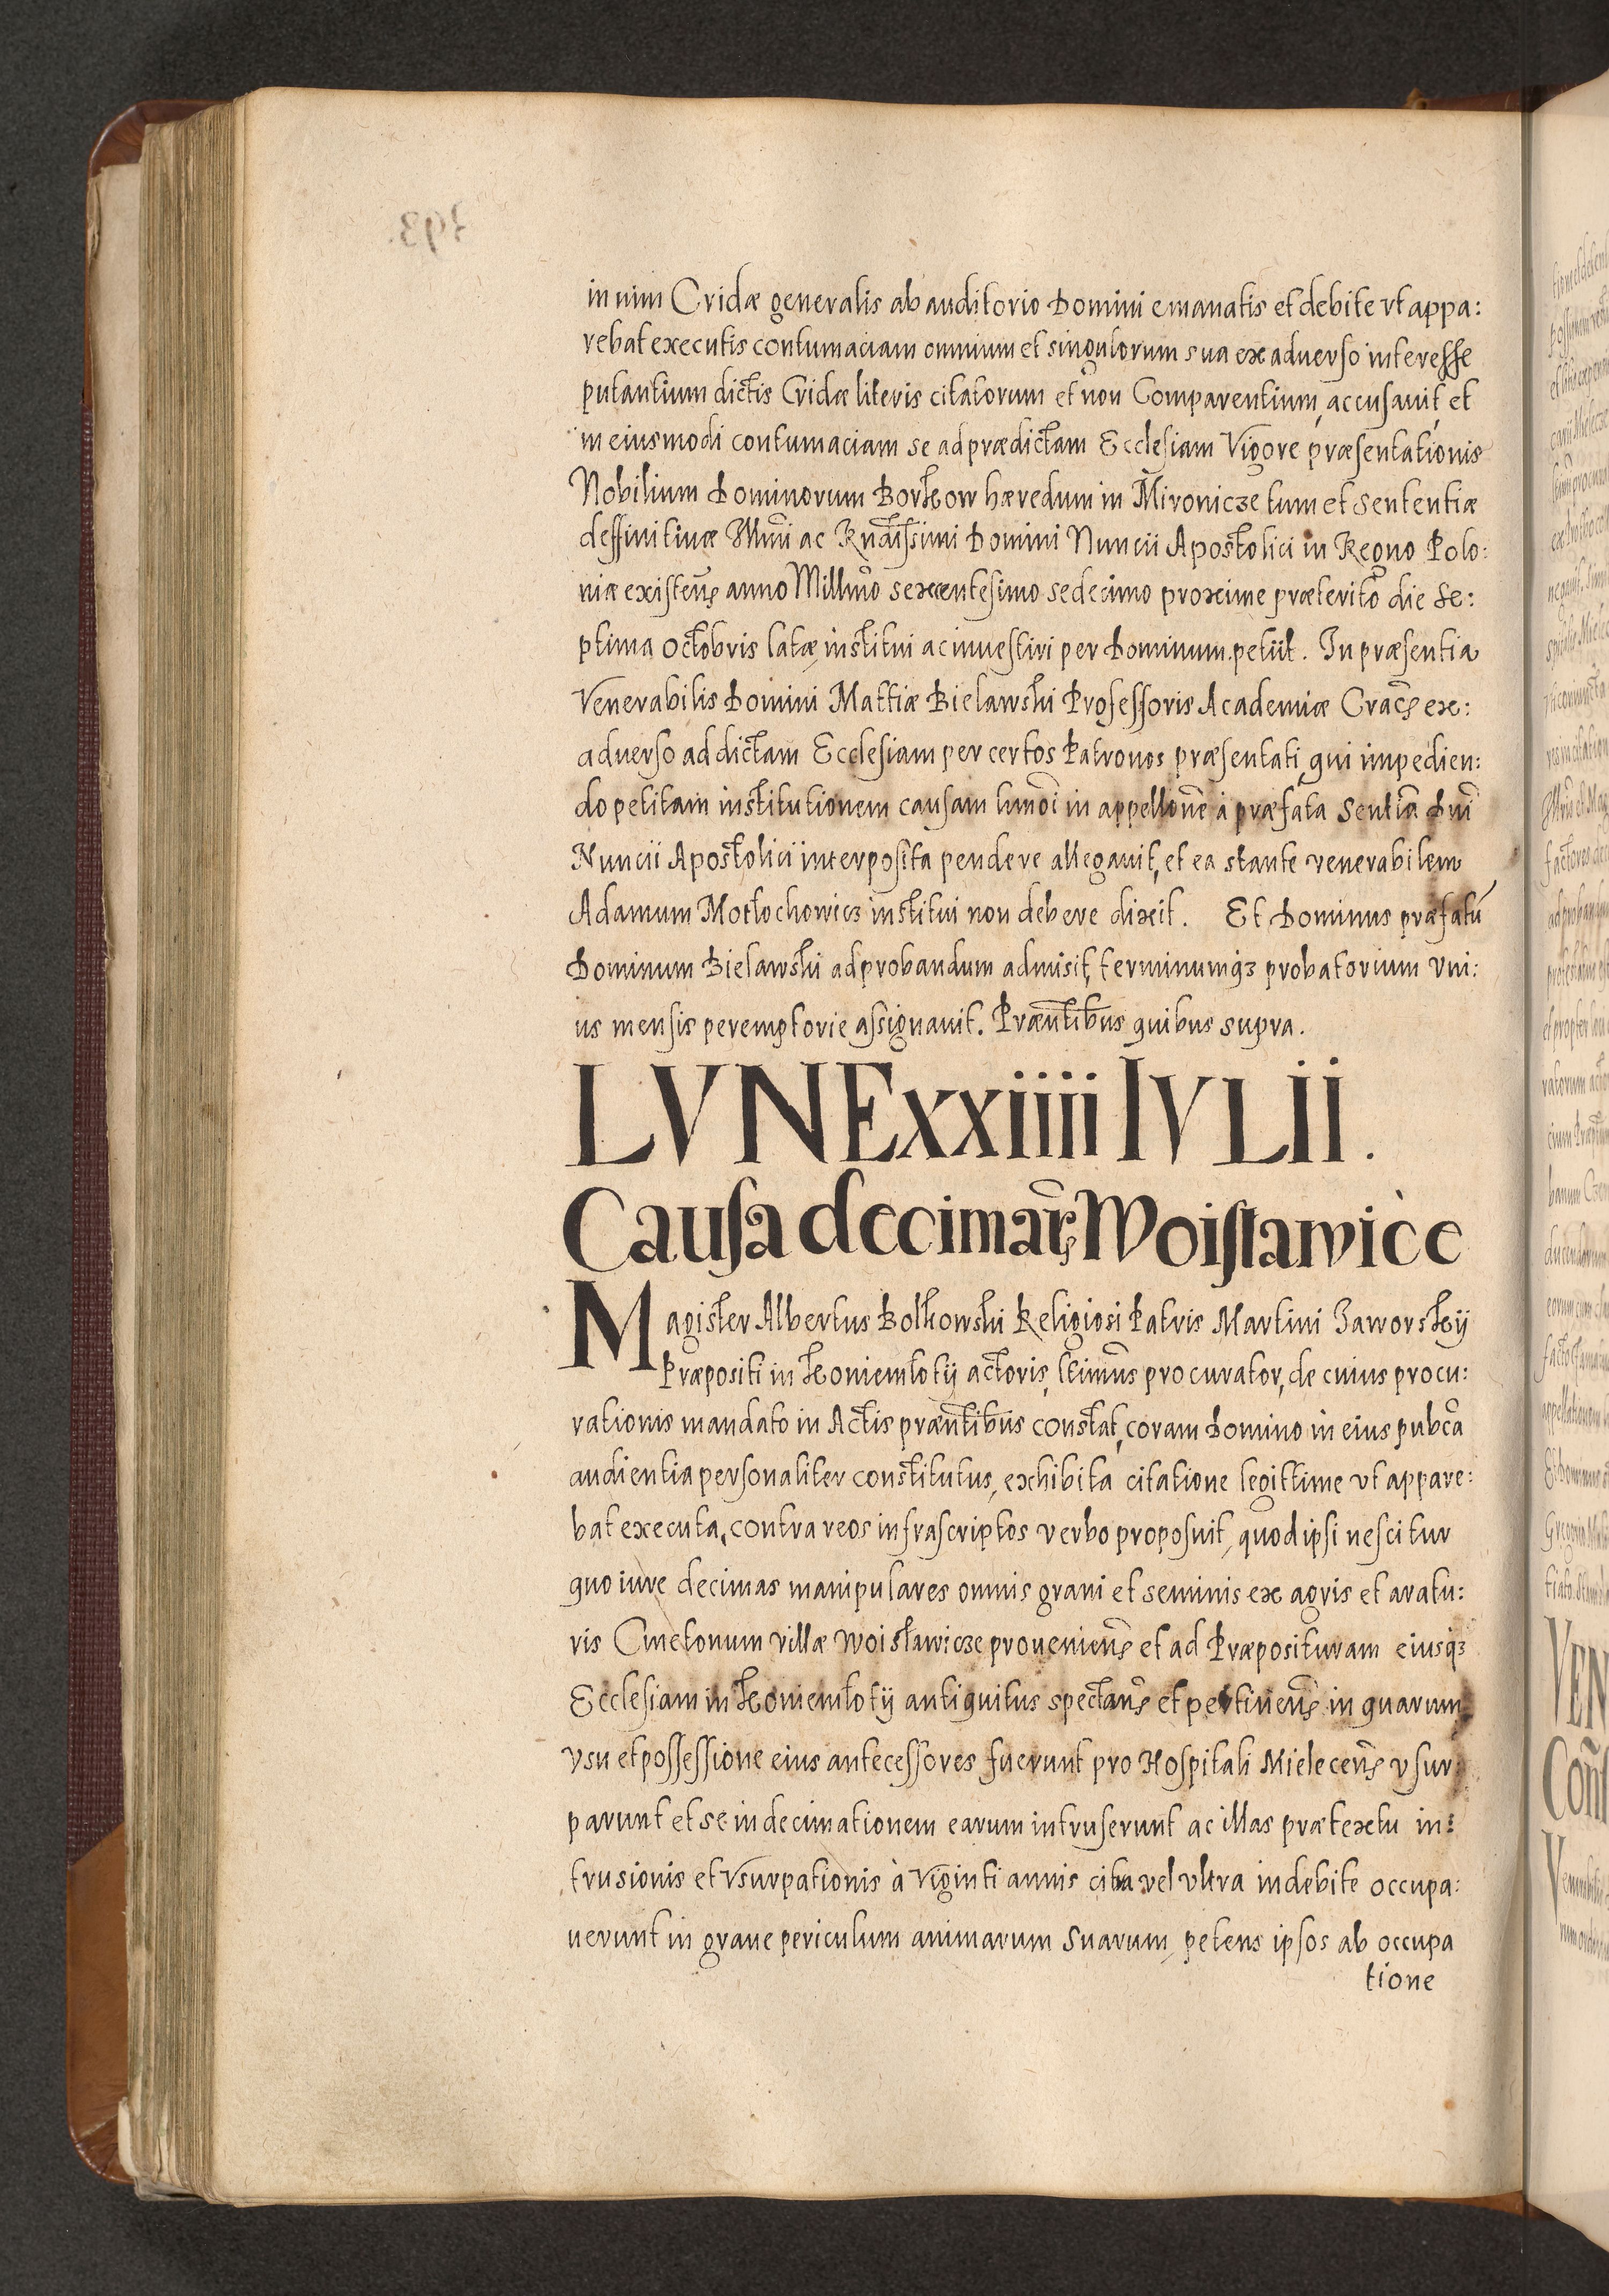 in uim Cridæ generalis ab auditorio Domini emanatis et debite vt appa:
rebat executis contumaciam omnium et singulorum sua ex aduerso interesse
putantium dictis Cridæ literis citatorum et non Comparentium, accusauit, et
in eiusmodi contumaciam se ad prædictam Ecclesiam Vigore præsentationis
Nobilium Dominorum Borkow hæredum in Mironicze tum et Sententiæ
deffinitiuæ Illmi ac Rndissimi Domini Nuncii Apostolici in Regno Polo:
niæ existens anno Millmo sexcentesimo sedecimo proxime præterito die Se:
ptima Octobris latæ, institui ac inuestiri per Dominum petiit. In præsentia
Venerabilis Domini Mattiæ Bielawski Professoris Academiæ Cracs ex:
aduerso ad dictam Ecclesiam per certos Patronos præsentati, qui impedien:
do petitam institutionem causam hmoi in appellone à præfata Sentia Dni
Nuncii Apostolici interposita pendere allegauit, et ea stante venerabilem
Adamum Mottochowicz institui non debere dixit. Et Dominus præfatū
Dominum Bielawski ad probandum admisit, terminumqз probatorium vni:
us mensis peremptorie assignauit. Præntibus quibus supra.
LVNE xxiiii IVLii.
Causa decimar Woislawice
Magister Albertus Bolkowski Religiosi Patris Martini Jaworskij
Præpositi in Koniemlotij actoris, ltimus procurator, de cuius procu:
rationis mandato in Actis præntibus constat, coram Domino in eius pubca
audientia personaliter constitutus, exhibita citatione legittime vt appare:
bat executa, contra reos infrascriptos verbo proposuit, quod ipsi nescitur
quo iure decimas manipulares omnis grani et seminis ex agris et aratu:
ris Cmetonum villæ Woislawicze proueniens et ad Præposituram eiusqз
Ecclesiam in Koniemlotij antiquitus spectans et pertinens in quarum
vsu et possessione eius antecessores fuerunt pro Hospitali Mielecens vsur:
parunt et se in decimationem earum intruserunt ac illas prætextu in:
trusionis et Vsurpationis à viginti annis citra vel vltra indebite occupa:
uerunt in graue periculum animarum Suarum, petens ipsos ab occupa
tione